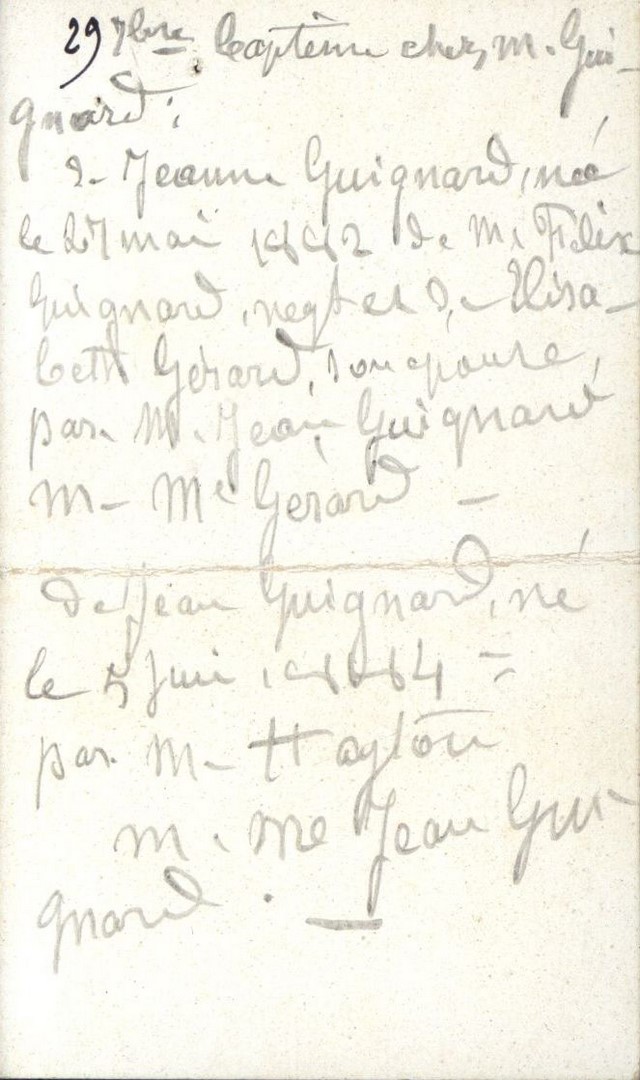 29 7bre Baptême chez M. Gui-
gnard :
de Jeanne Guignard, née
le 27 mai 1882 de M. Félix
Guignard, negt et de Elisa-
beth Gérard, son épouse,
par. M. Jean Guignard
m- Me Gérard -
de Jean Guignard, né
le 5 juin 1884 -
par. M-
m. Me Jean Gui-
gnard.